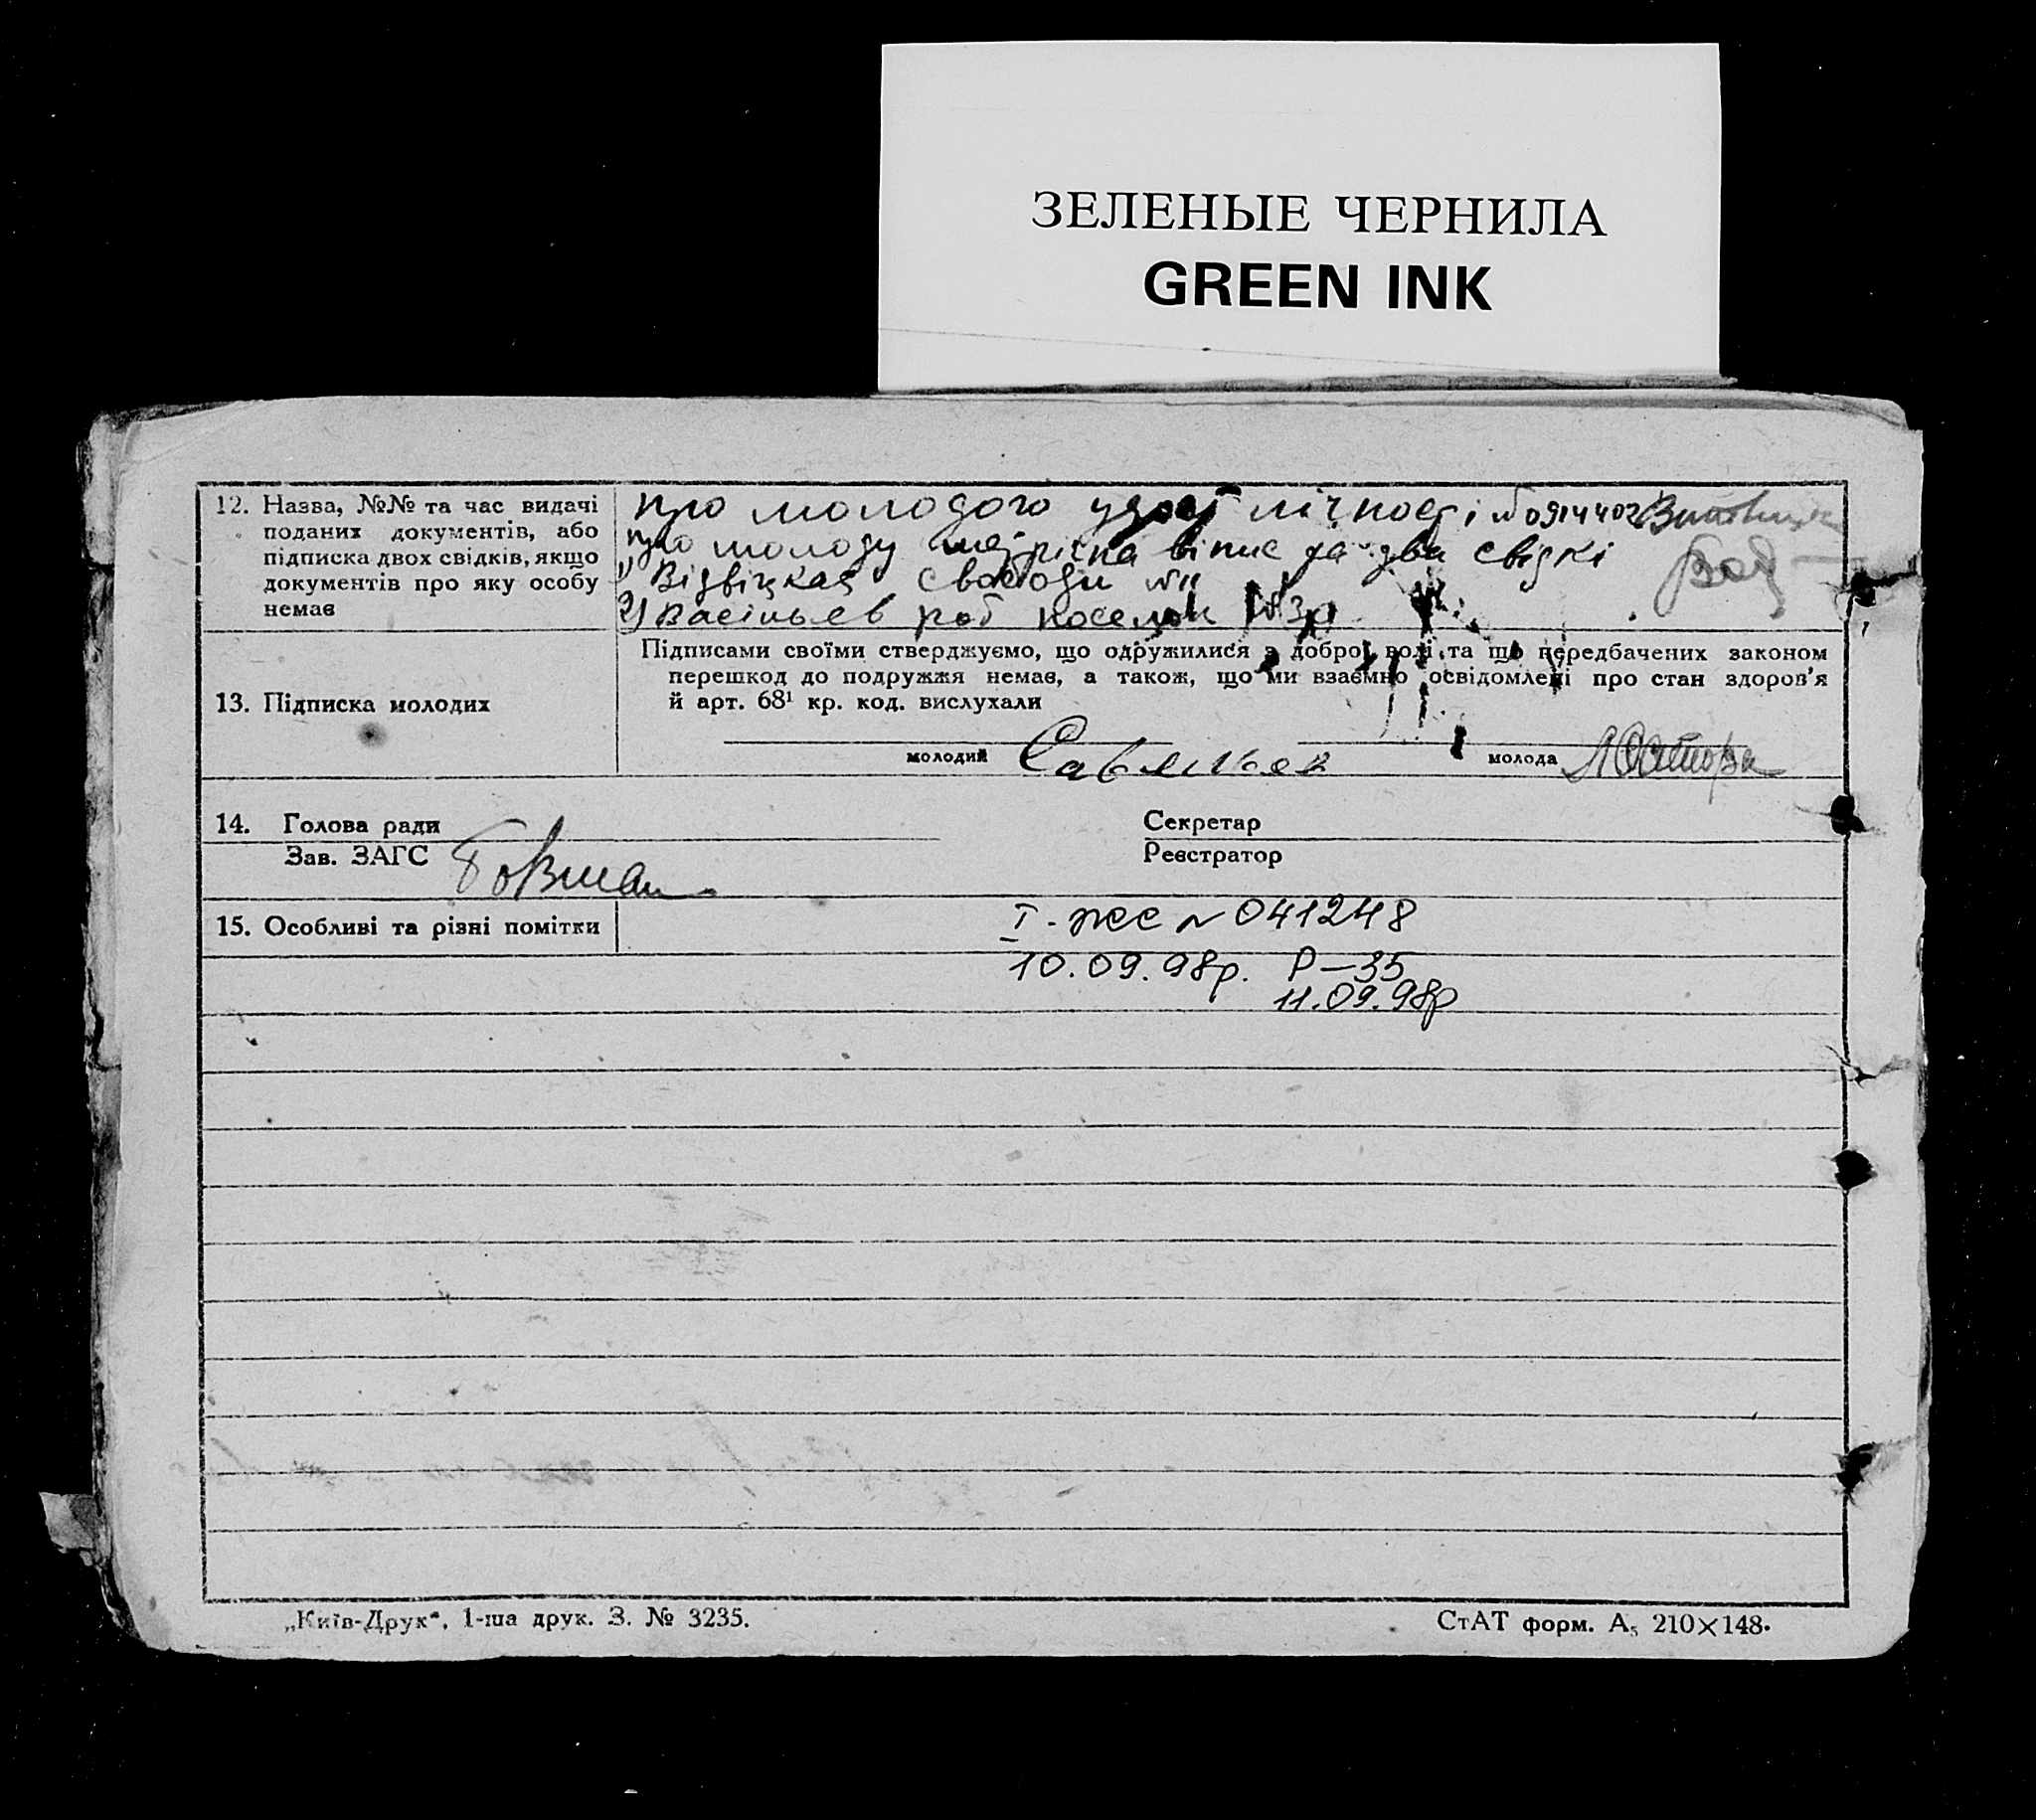 ЗЕЛЕНЫЕ ЧЕРНИЛА
GREEN INK
12. Назва, №№ та час видачі
поданих документів, або
підписка двох свідків, якщо
документів про яку особу
немає
про молодого удост лічності №
про молоду метрична віпис та два свідкі
1) Свободи №11
2) Васільєв роб поселок №
13. Підписка молодих
Підписами своїми стверджуємо, що одружилися з доброї волі та що передбачених законом
перешкод до подружжя немає, а також, що ми взаємно освідомлені про стан здоров'я
й арт. 68¹ кр. код. вислухали
молодий Савельев молода
14. Голова ради Секретар
Зав. ЗАГС Реєстратор
15. Особливі та різні помітки
І-жс № 041248
10.09.98р. Р-35
11.09.98р
„Київ-Друк“, 1-ша друк. З. № 3235. СтАТ форм. А₅ 210×148.